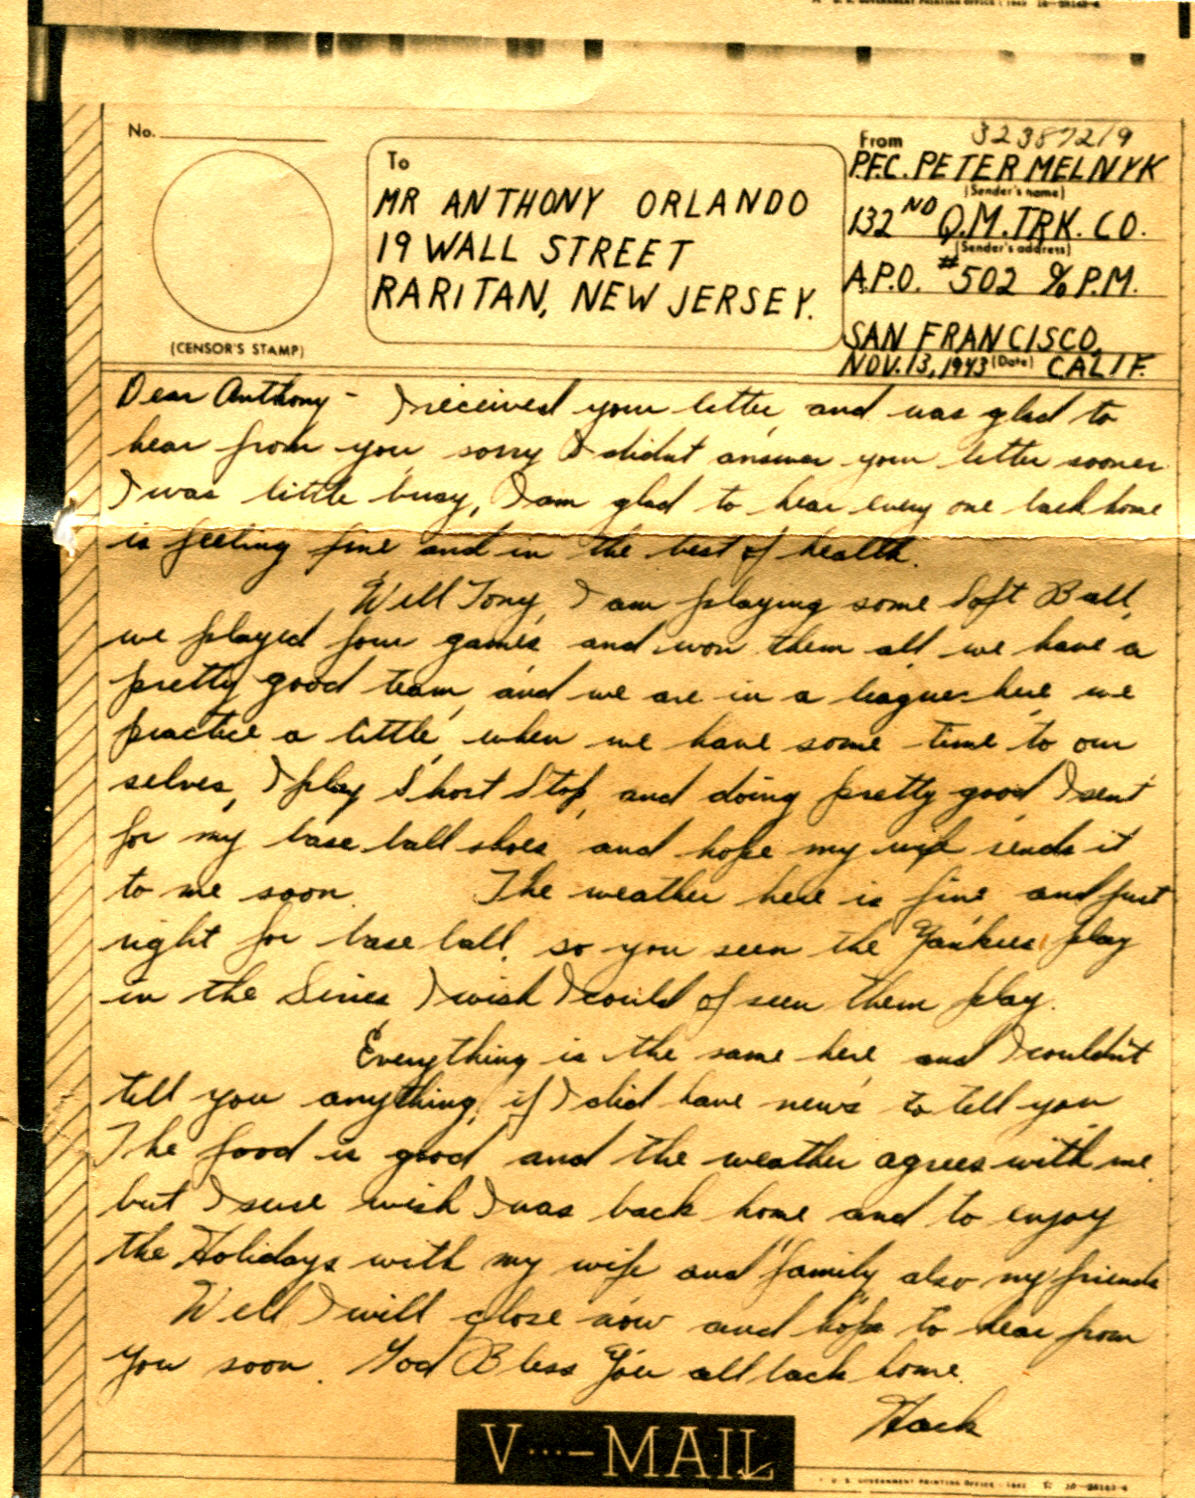 No.
(CENSOR'S STAMP)
To
MR ANTHONY ORLANDO
19 WALL STREET
RARITAN, NEW JERSEY.
From 32387219
P.F.C. PETER MELNYK
(Sender's name)
132 ND Q.M. TRK. CO.
(Sender's address)
A.P.O. #502 % P.M.
SAN FRANCISCO,
NOV. 13, 1943 (Date) CALIF.
Dear Anthony - I received your letter, and was glad to
hear from you sorry I didnt answer your letter sooner
I was little busy, I am glad to hear every one back home
is feeling fine and in the best of health.
Well Tony, I am playing some Soft Ball,
we played four games, and won them all, we have a
pretty good team, and we are in a league here, we
practice a little, when we have some time to our
selves, I play Short Stop, and doing pretty good I sent
for my base ball shoes, and hope my wife sends it
to me soon. The weather here is fine and just
right for base ball, so you seen the Yankees play
in the Series, I wish I could of seen them play.
Everything is the same here and I couldn't
tell you anything, if I did have news to tell you
The food is good and the weather agrees with me.
but I sure wish I was back home and to enjoy
the Holidays with my wife and family also my friends
Well I will close now and hope to hear from
you soon. God Bless You all back home.
Hack
V···–MAIL
U. S. GOVERNMENT PRINTING OFFICE